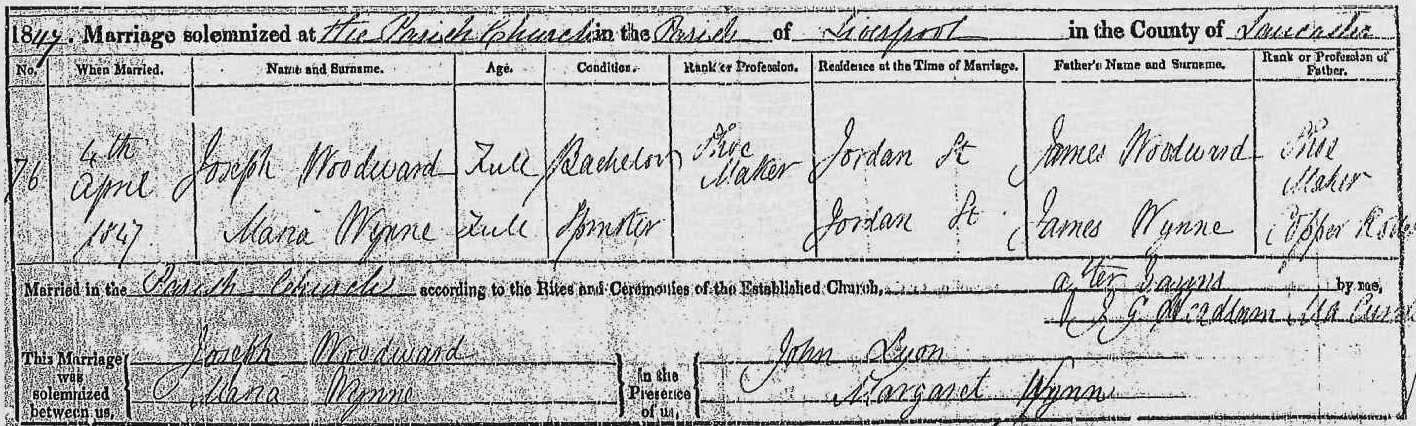 1847. Marriage solemnized at the Parish Church in the Parish of Liverpool in the County of Lancaster
No. When Married. Name and Surname. Age. Condition. Rank or Profession. Residence at the Time of Marriage. Father's Name and Surname. Rank or Profession of Father.
76 4th April 1847 Joseph Woodward Full Bachelor Shoe Maker Jordan St James Woodward Shoe Maker
Maria Wynne Full Spinster Jordan St James Wynne
Married in the Parish Church according to the Rites and Ceremonies of the Established Church, after Banns by me,
This Marriage was solemnized between us, Joseph Woodward In the Presence of us, John Lyon
Maria Wynne Margaret Wynn